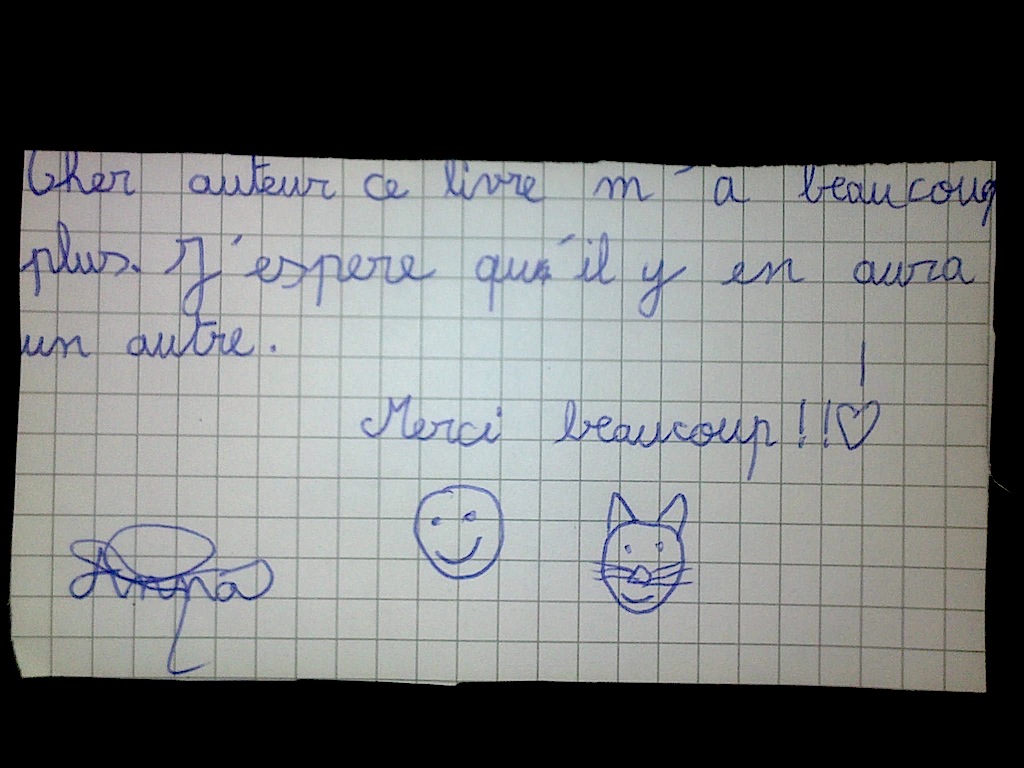 Cher auteur ce livre m'a beaucoup
plus. J'espere qu'il y en aura
un autre.
Merci beaucoup !!♡